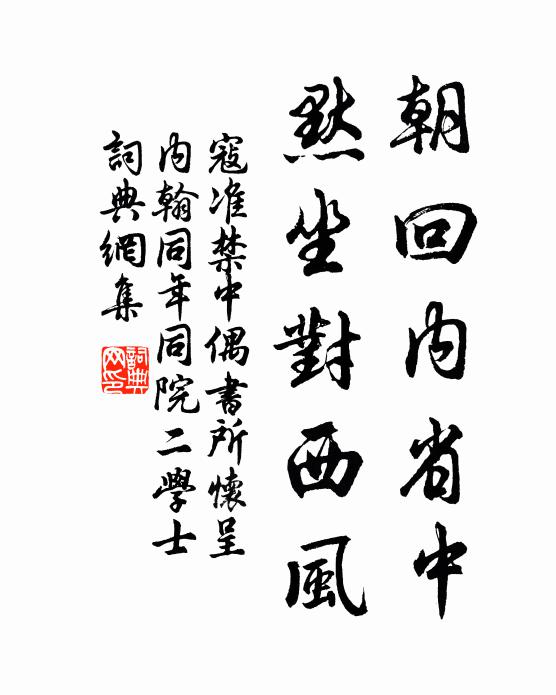 朝回内省中
默坐對西風
寇准禁中偶書所懷呈
内翰同年同院二學士
詞典網集
詞典網印